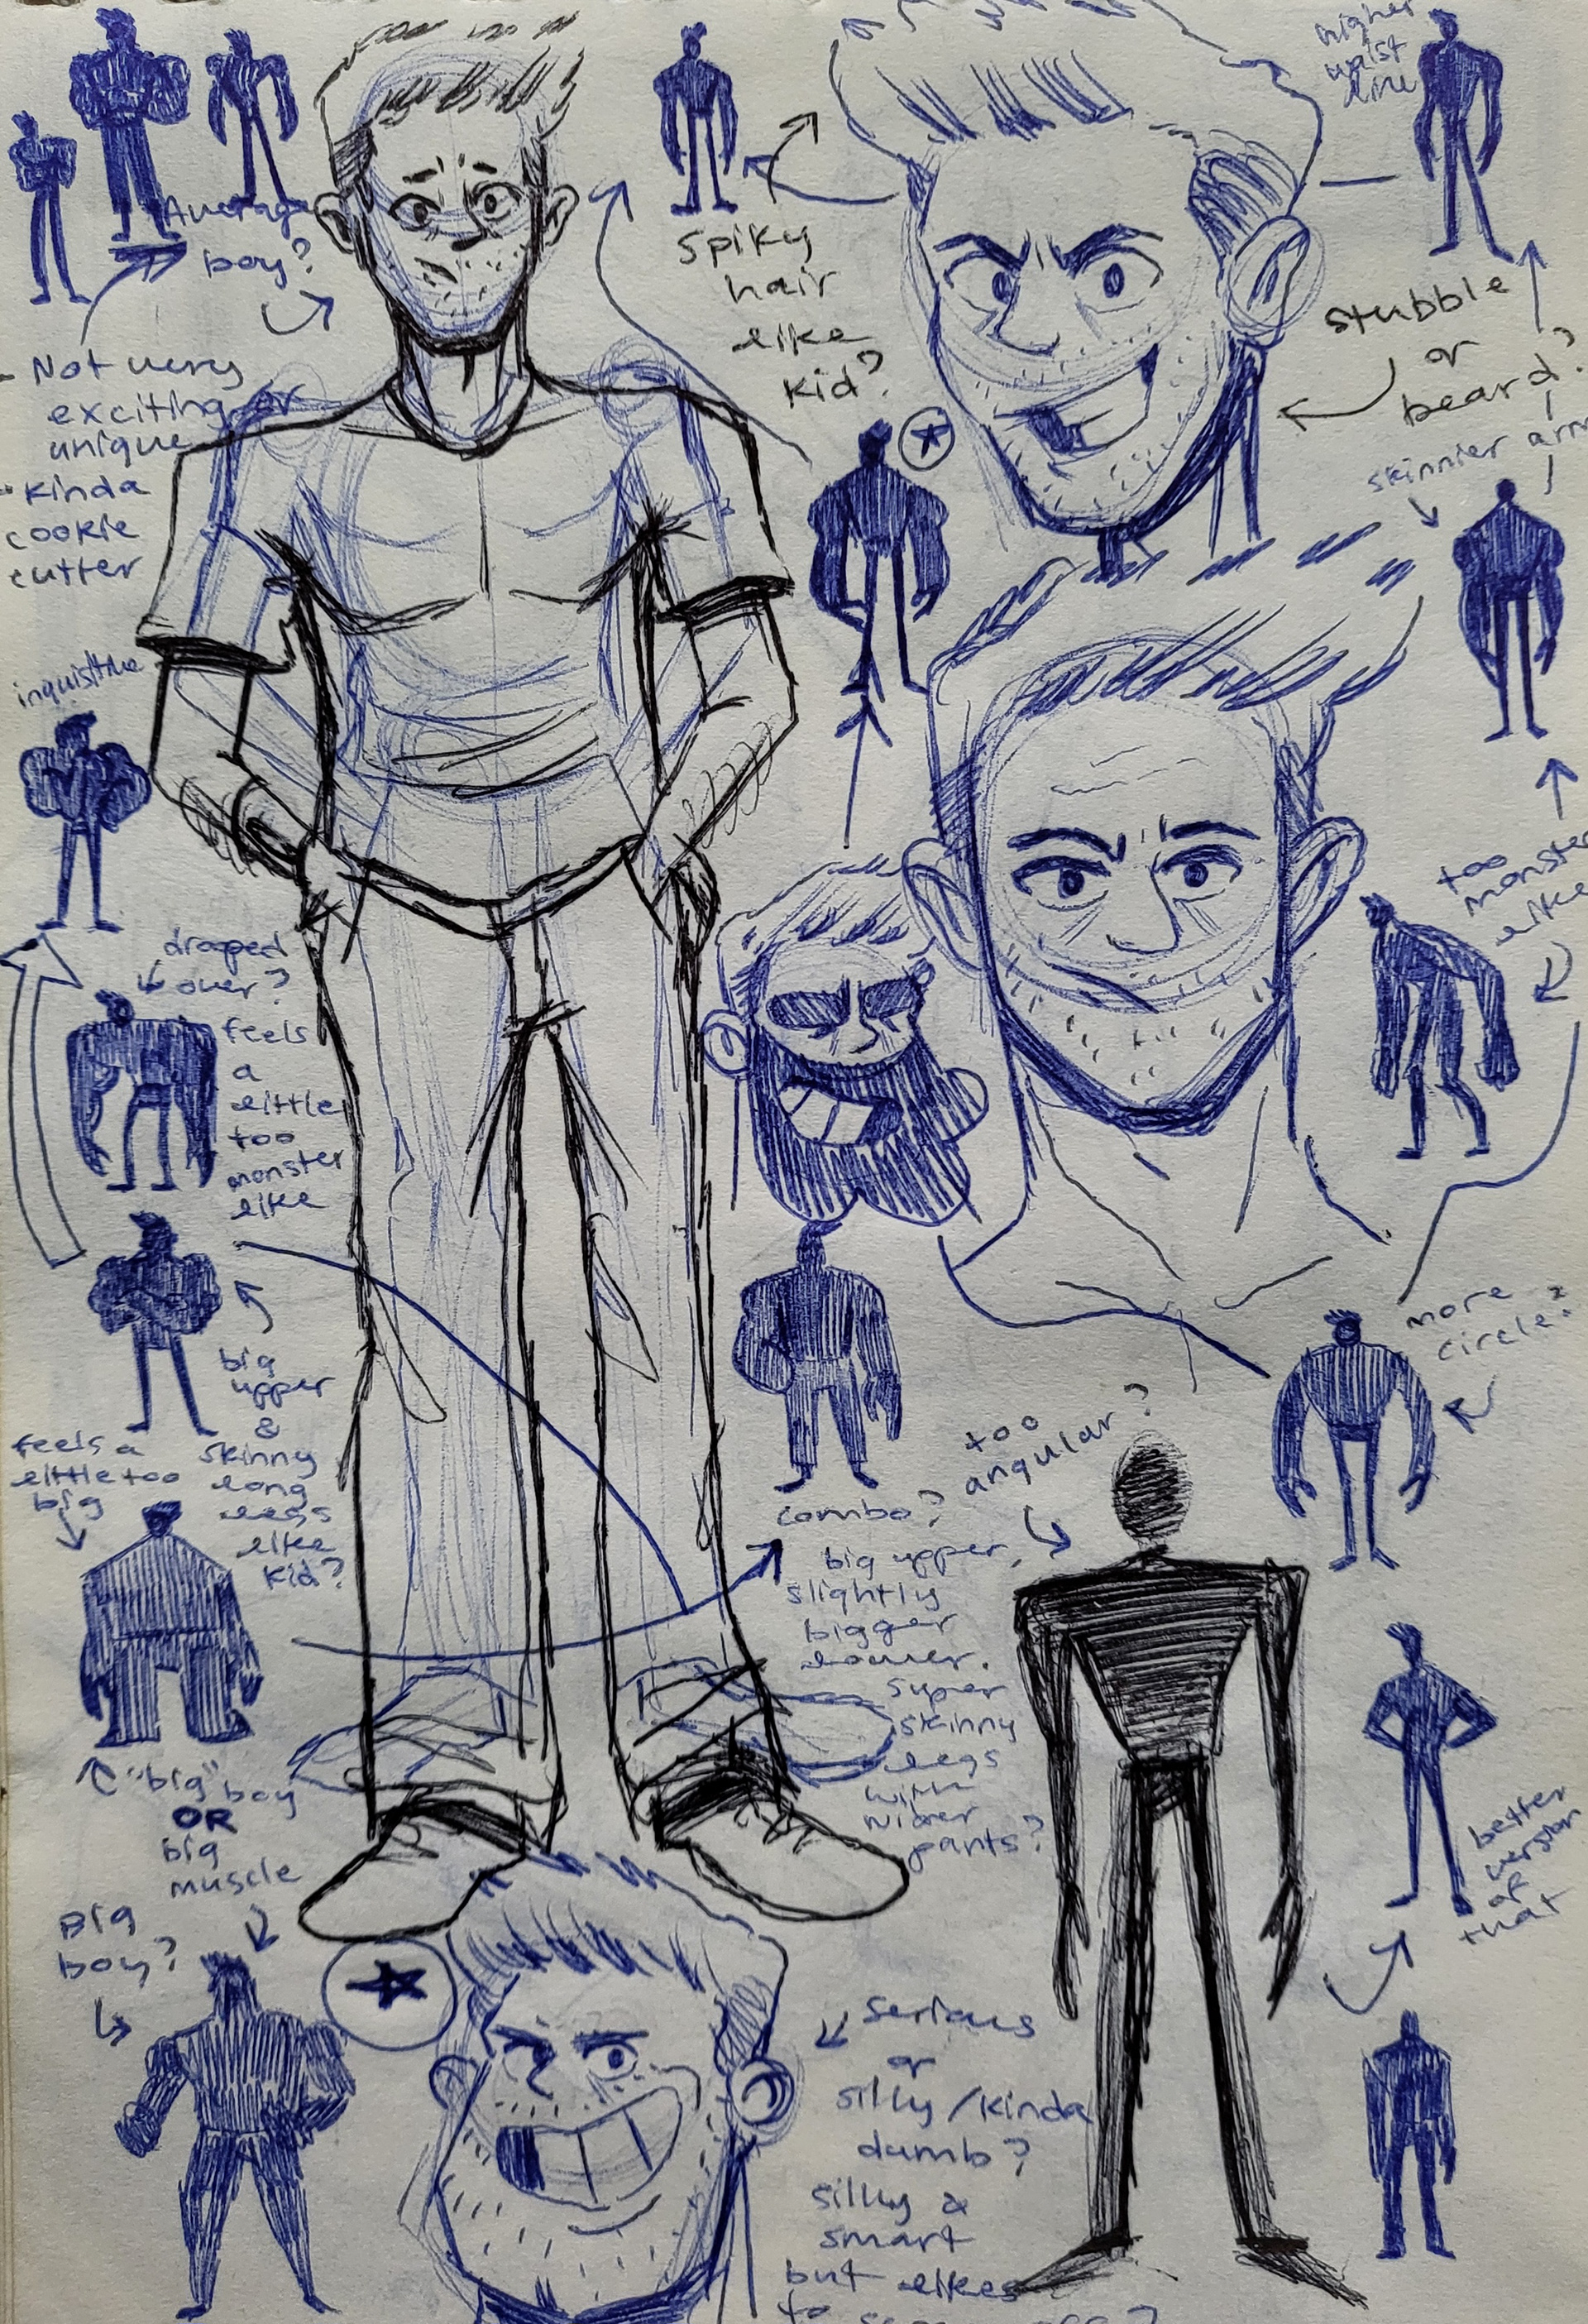 higher
waist
line
Average
boy?
Spiky
hair
like
kid?
stubble
or
beard?
- Not very
exciting or
unique
- kinda
cookie
cutter
skinnier arm
inquisitive
too
monster
like
dropped
over?
feels
a
little
too
monster
like
more
circle?
big
upper
&
skinny
long
legs
like
kid?
feels a
little too
big
too
angular?
combo?
big upper,
slightly
bigger
lower.
super
skinny
legs
with
wider
pants?
"big" boy
OR
big
muscle
better
version
of
that
Big
boy?
serious
or
silly/kinda
dumb?
silly &
smart
but likes
to